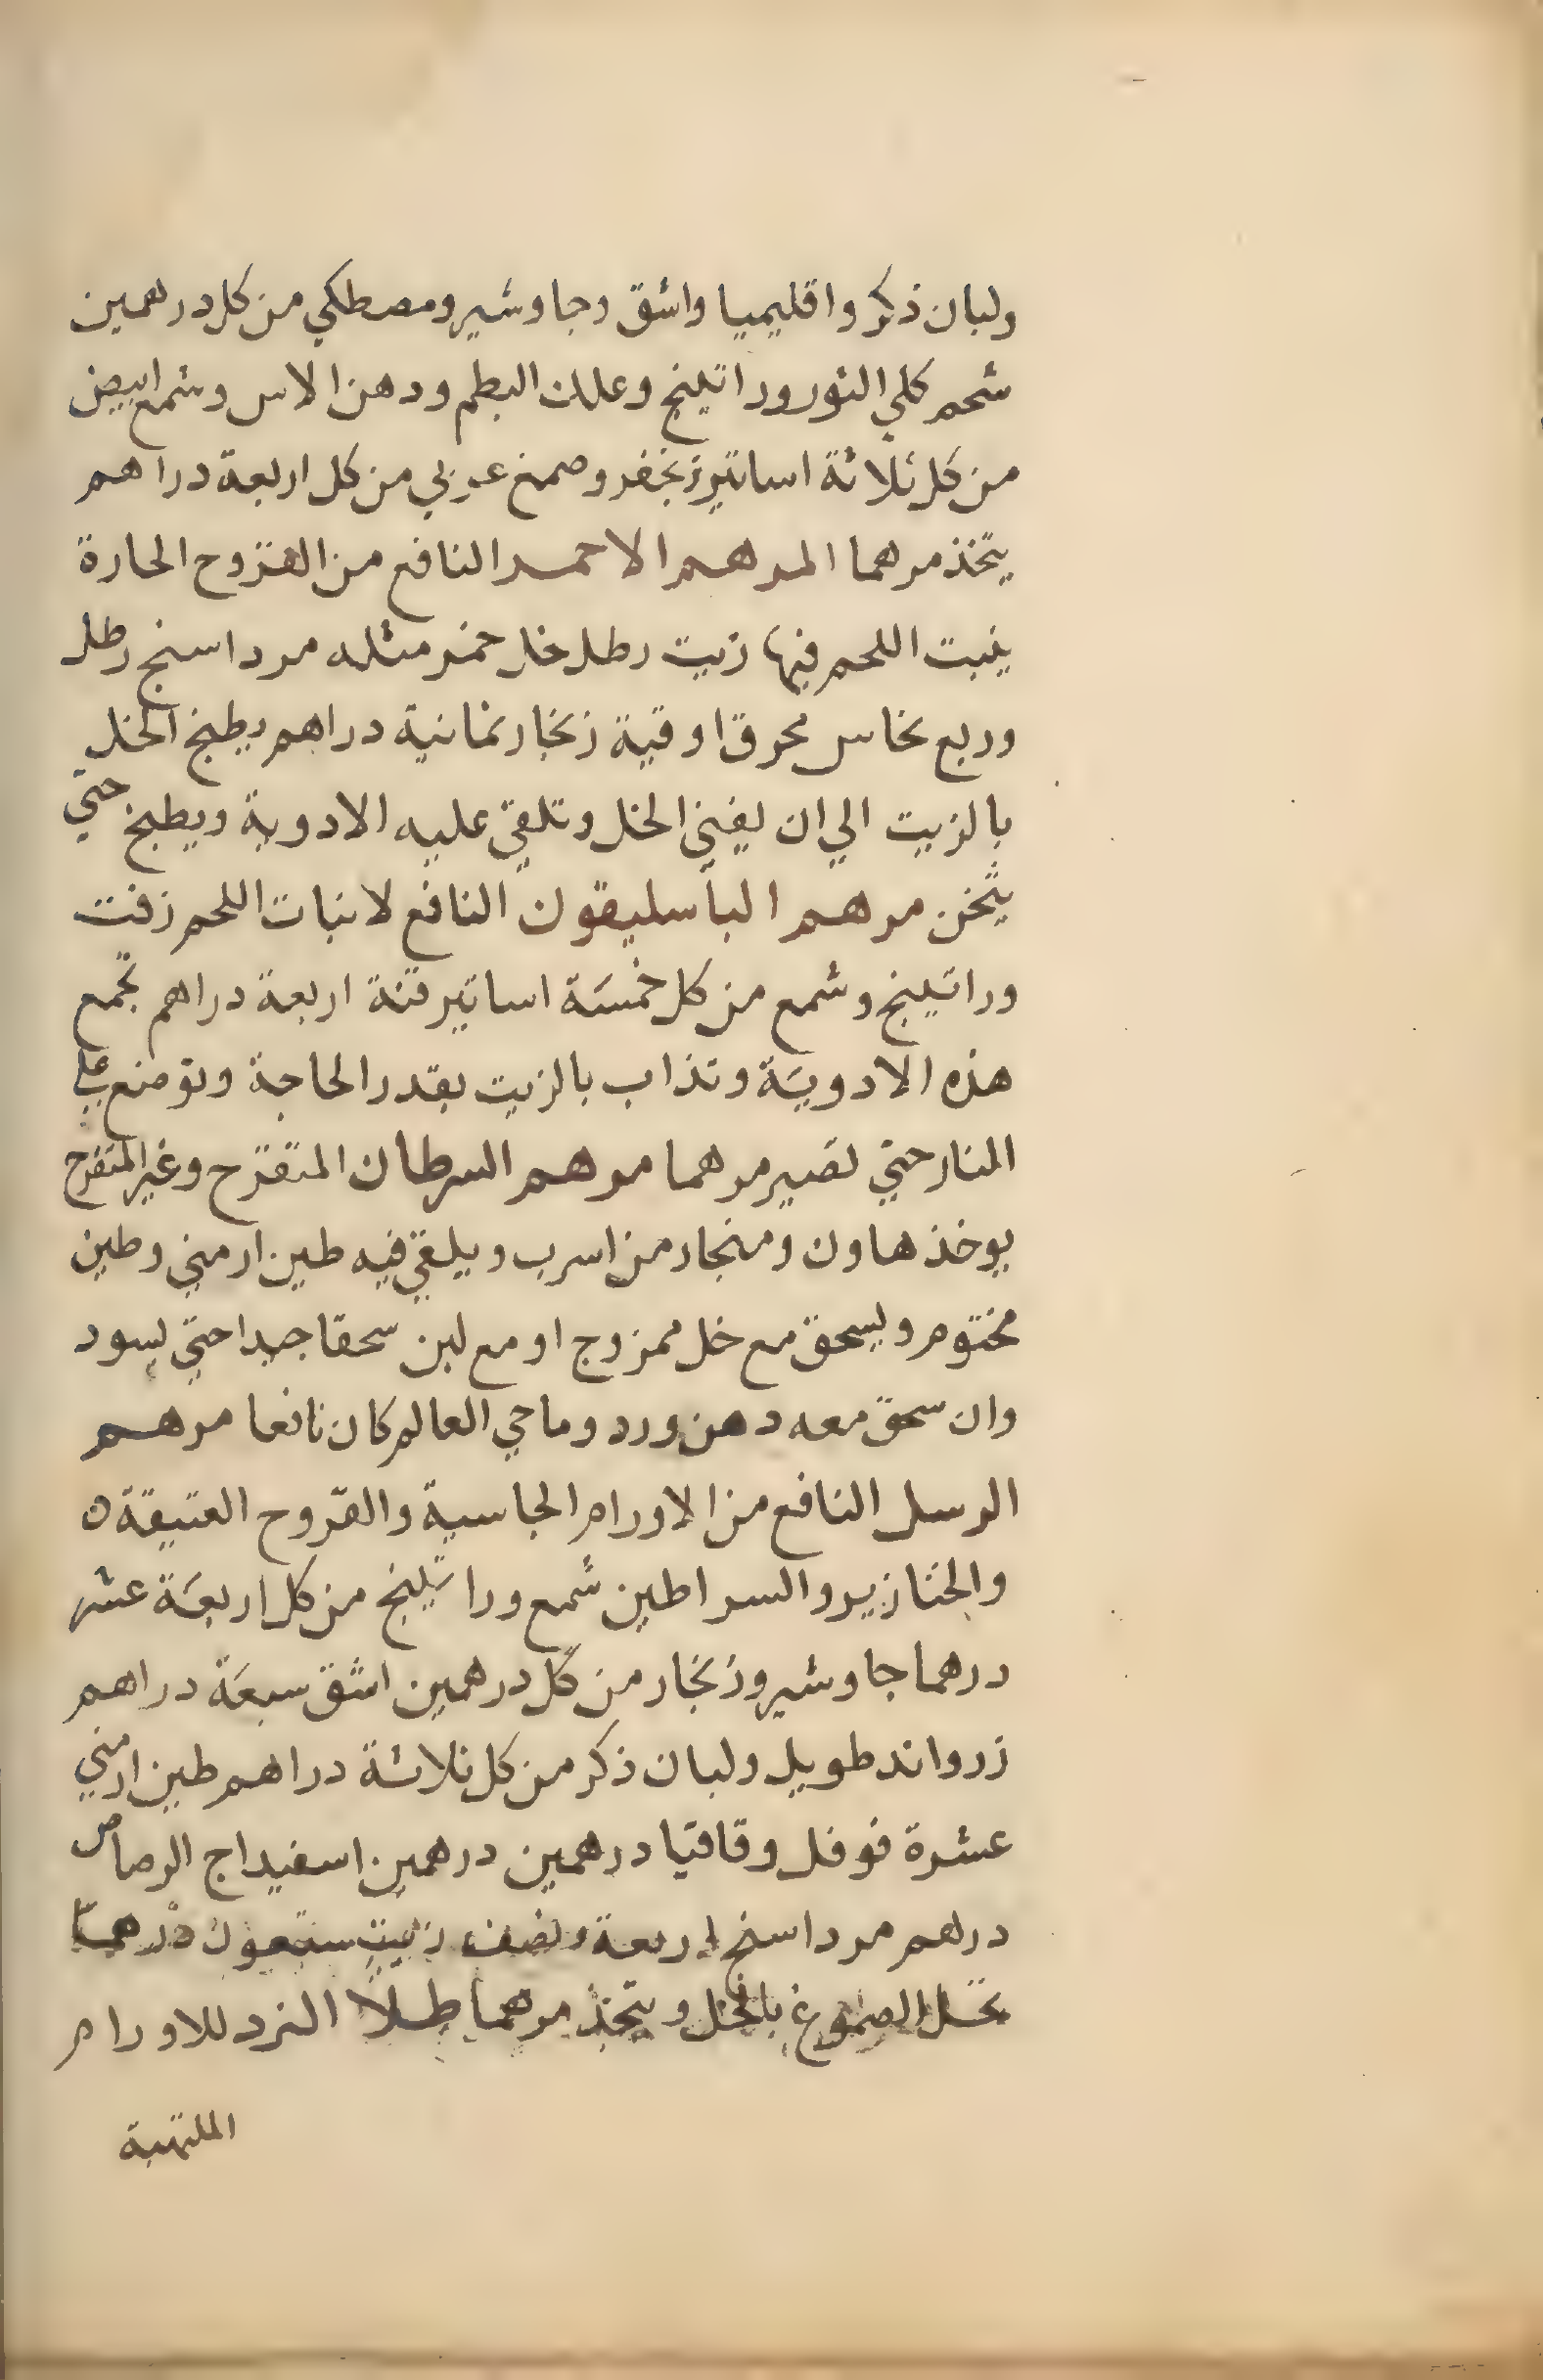 ولبان ذكر واقليميا واشق وجاوشير ومصطكي من كل درهمين
شحم كلي الثور وراتينج وعلك البطم ودهن الاس وشمع ابيض
من كل ثلاثة اساتير زنجفر وصمغ عربي من كل اربعة دراهم
يتخذ مرهما المرهم الاحمر النافع من القروح الحارة
ينبت اللحم فيها زيت رطل خل خمر مثله مرداسنج رطل
وربع نحاس محرق اوقية زنجار ثمانية دراهم يطبخ الخل
بالزيت الي ان يفني الخل وتلقي عليه الادوية ويطبخ حتي
يثخن مرهم الباسليقون النافع لانبات اللحم زفت
وراتينج وشمع من كل خمسة اساتير قنة اربعة دراهم تجمع
هذه الادوية وتذاب بالزيت بقدر الحاجة وتوضع علي
النار حتي تصير مرهما مرهم السرطان المتقرح وغير المتقرح
يوخذ هاون ومنجار من اسرب ويلقي فيه طين ارمني وطين
مختوم ويسحق مع خل ممزوج او مع لبن سحقا جيدا حتي يسود
وان سحق معه دهن ورد وما حي العالم كان نافعا مرهم
الرسل النافع من الاورام الجاسية والقروح العتيقة ٥
والخنازير والسراطين شمع وراتينج من كل اربعة عشر
درهما جاوشير وزنجار من كل درهمين اشق سبعة دراهم
زرواند طويل ولبان ذكر من كل ثلاثة دراهم طين ارمني
عشرة فوفل وقاقيا درهمين درهمين اسفيداج الرصاص
درهم مرداسنج اربعة ونصف زيت ستعون درهما
تحل الصموغ بالخل ويتخذ مرهما طلا النرد للاورام
الملتهبة